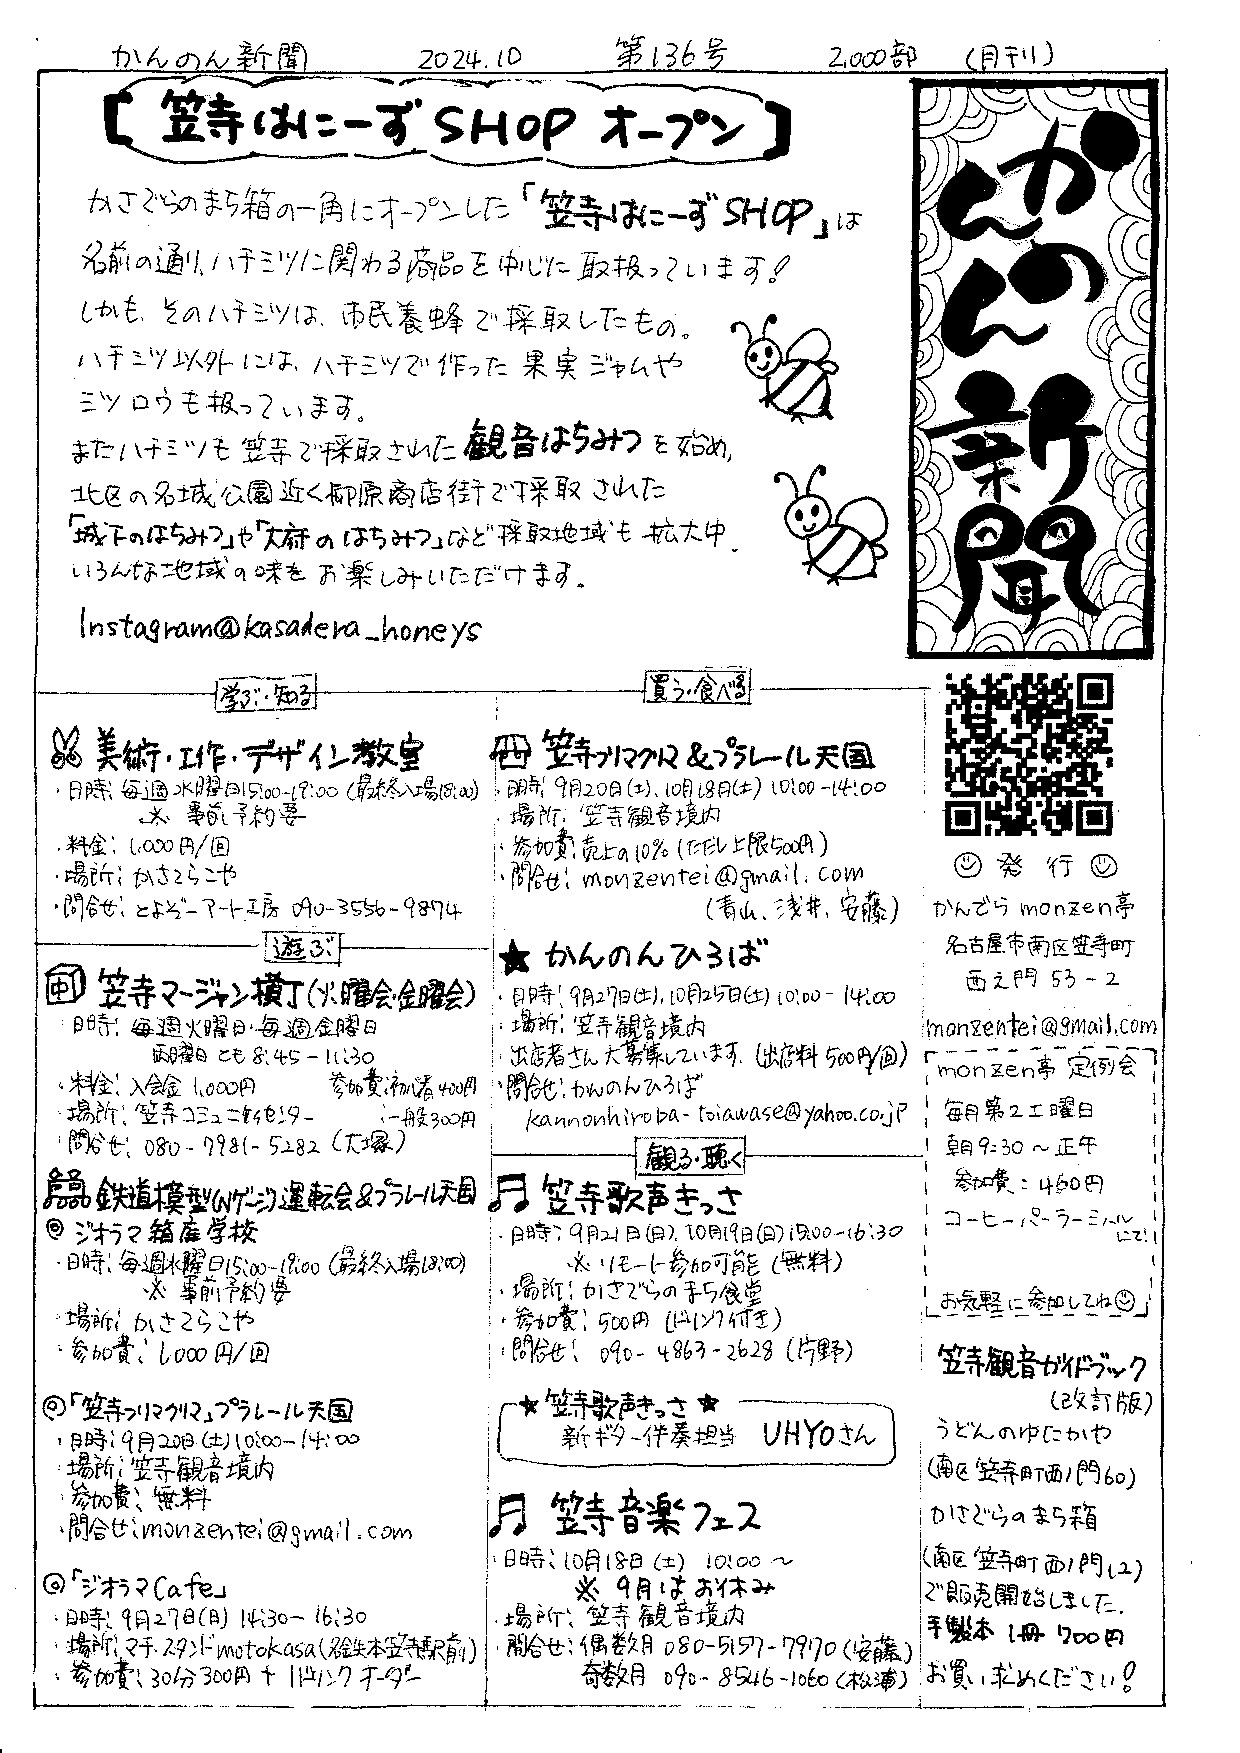 かんのん新聞 2024.10 第136号 2,000部 (月刊)
【笠寺はにーずSHOP オープン】
かさでらのまち箱の一角にオープンした「笠寺はにーずSHOP」は
名前の通り、ハチミツに関わる商品を中心に取扱っています!
しかも、そのハチミツは、市民養蜂で採取したもの。
ハチミツ以外には、ハチミツで作った果実ジャムや
ミツロウも扱っています。
またハチミツも笠寺で採取された観音はちみつを始め、
北区の名城公園近く柳原商店街で採取された
「城下のはちみつ」や「大府のはちみつ」など採取地域も拡大中。
いろんな地域の味をお楽しみいただけます。
Instagram@kasadera_honeys
かんのん新聞
学ぶ・知る
美術・工作・デザイン教室
・日時:毎週水曜日15:00-19:00(最終入場18:00)
※ 事前予約要
・料金:1,000円/回
・場所:かさてらこや
・問合せ:とよぞーアート工房 090-3556-9874
遊ぶ
中 笠寺マージャン横丁(火曜会・金曜会)
・日時:毎週火曜日・毎週金曜日
両曜日とも8:45-11:30
・料金:入会金1,000円 参加費:初心者400円
・場所:笠寺コミュニティセンター :一般300円
・問合せ:080-7981-5282(大塚)
鉄道模型(Nゲージ)運転会&プラレール天国
◎ジオラマ箱庭学校
・日時:毎週水曜日15:00-19:00(最終入場18:00)
※ 事前予約要
・場所:かさてらこや
・参加費:1,000円/回
◎「笠寺フリマクリマ」プラレール天国
・日時:9月20日(土)10:00-14:00
・場所:笠寺観音境内
・参加費:無料
・問合せ:monzentei@gmail.com
◎「ジオラマCafe」
・日時:9月27日(月) 14:30-16:30
・場所:マチ・スタンドmotokasa(名鉄本笠寺駅前)
・参加費:30分300円+1ドリンクオーダー
買う・食べる
笠寺フリマクリマ&プラレール天国
・日時:9月20日(土)、10月18日(土) 10:00-14:00
・場所:笠寺観音境内
・参加費:売上の10%(ただし上限500円)
・問合せ:monzentei@gmail.com
(青山、浅井、安藤)
★かんのんひろば
・日時:9月27日(土)、10月25日(土)10:00-14:00
・場所:笠寺観音境内
・出店者さん大募集しています。(出店料500円/回)
・問合せ:かんのんひろば
kannonhiroba-toiawase@yahoo.co.jp
観る・聴く
♫ 笠寺歌声きっさ
・日時:9月21日(日)、10月19日(日)15:00-16:30
※リモート参加可能(無料)
・場所:かさでらのまち食堂
・参加費:500円(ドリンク付き)
・問合せ:090-4863-2628(片野)
★笠寺歌声きっさ★
新ギター伴奏担当 UHYOさん
♫ 笠寺音楽フェス
・日時:10月18日(土) 10:00〜
※ 9月はお休み
・場所:笠寺観音境内
・問合せ:偶数月 080-5157-7970(安藤)
奇数月 090-8546-1060(松浦)
☺発行☺
かんでらmonzen亭
名古屋市南区笠寺町
西之門53-2
monzentei@gmail.com
monzen亭 定例会
毎月第2土曜日
朝9:30〜正午
参加費:460円
コーヒーパーラーミハル
にて!
お気軽に参加してね☺
笠寺観音ガイドブック
(改訂版)
うどんのゆにかや
(南区笠寺町西ノ門60)
かさでらのまち箱
(南区笠寺町西ノ門12)
で販売開始しました。
手製本 1冊700円
お買い求めください!